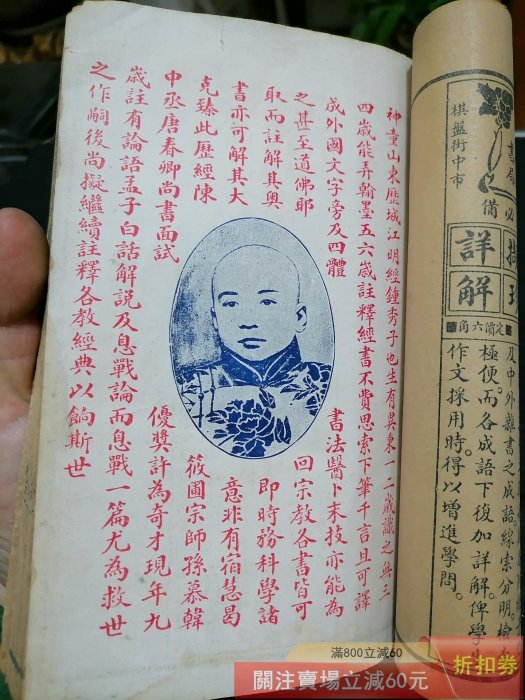 神童山東歷城江明經鍾秀子也生有異秉一二歲識之無三
四歲能弄翰墨五六歲註釋經書不費思索下筆千言且可譯
成外國文字旁及四體 書法醫卜末技亦能為
之甚至道佛耶 回宗教各書皆可
取而註解其奧 即時務科學諸
書亦可解其大 意非有宿慧曷
克臻此歷經陳 筱圃宗師孫慕韓
中丞唐春卿尚書面試 優獎許為奇才現年九
歲註有論語孟子白話解說及息戰論而息戰一篇尤為救世
之作嗣後尚擬繼續註釋各教經典以餉斯世
書局必備
棋盤街中市
詳解
定價六角
及中外雜書之成語線索分明。檢
極便。而各成語下復加詳解。俾學
作文採用時。得以增進學問。
滿800立減60
關注賣場立減60元
折扣券